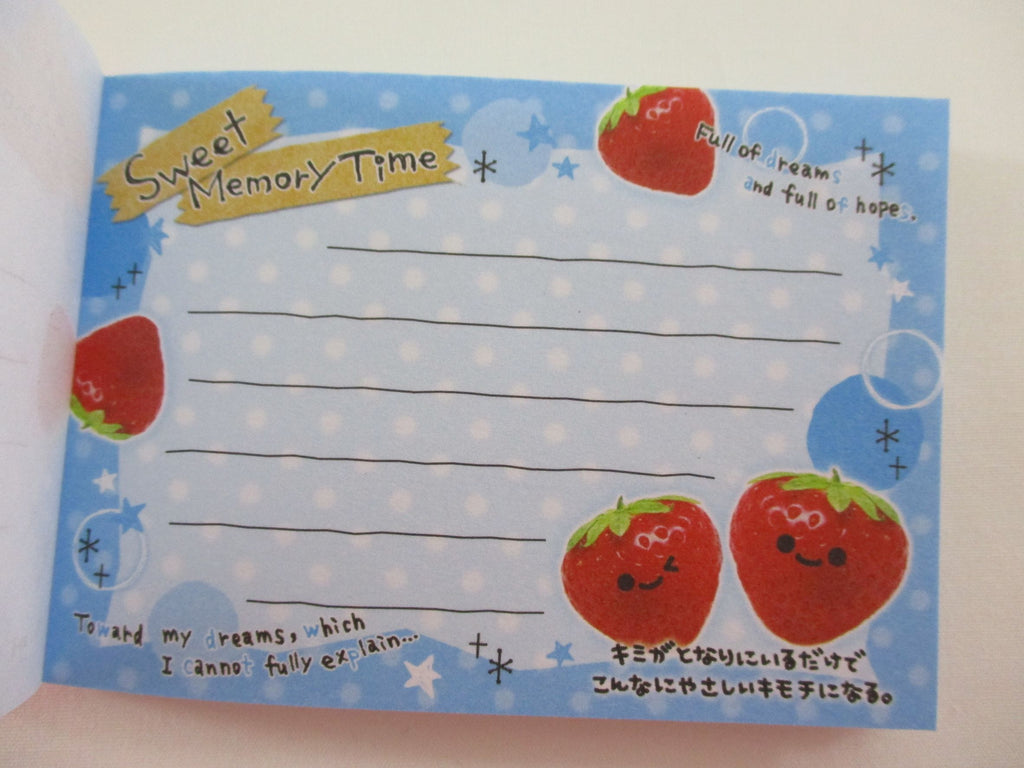 Sweet
Memory Time
Full of dreams
and full of hopes.
Toward my dreams, which
I cannot fully explain...
キミがとなりにいるだけで
こんなにやさしいキモチになる。